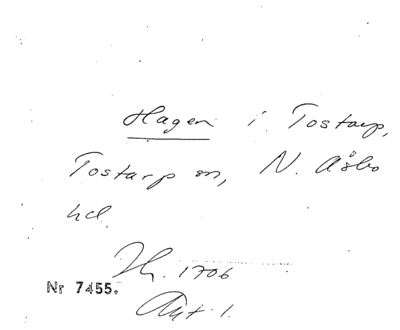 Hagen i Tostarp,
Tostarp sn, N. Åsbo
hd.
Jh. 1706
Nr 7455.
Akt 1.